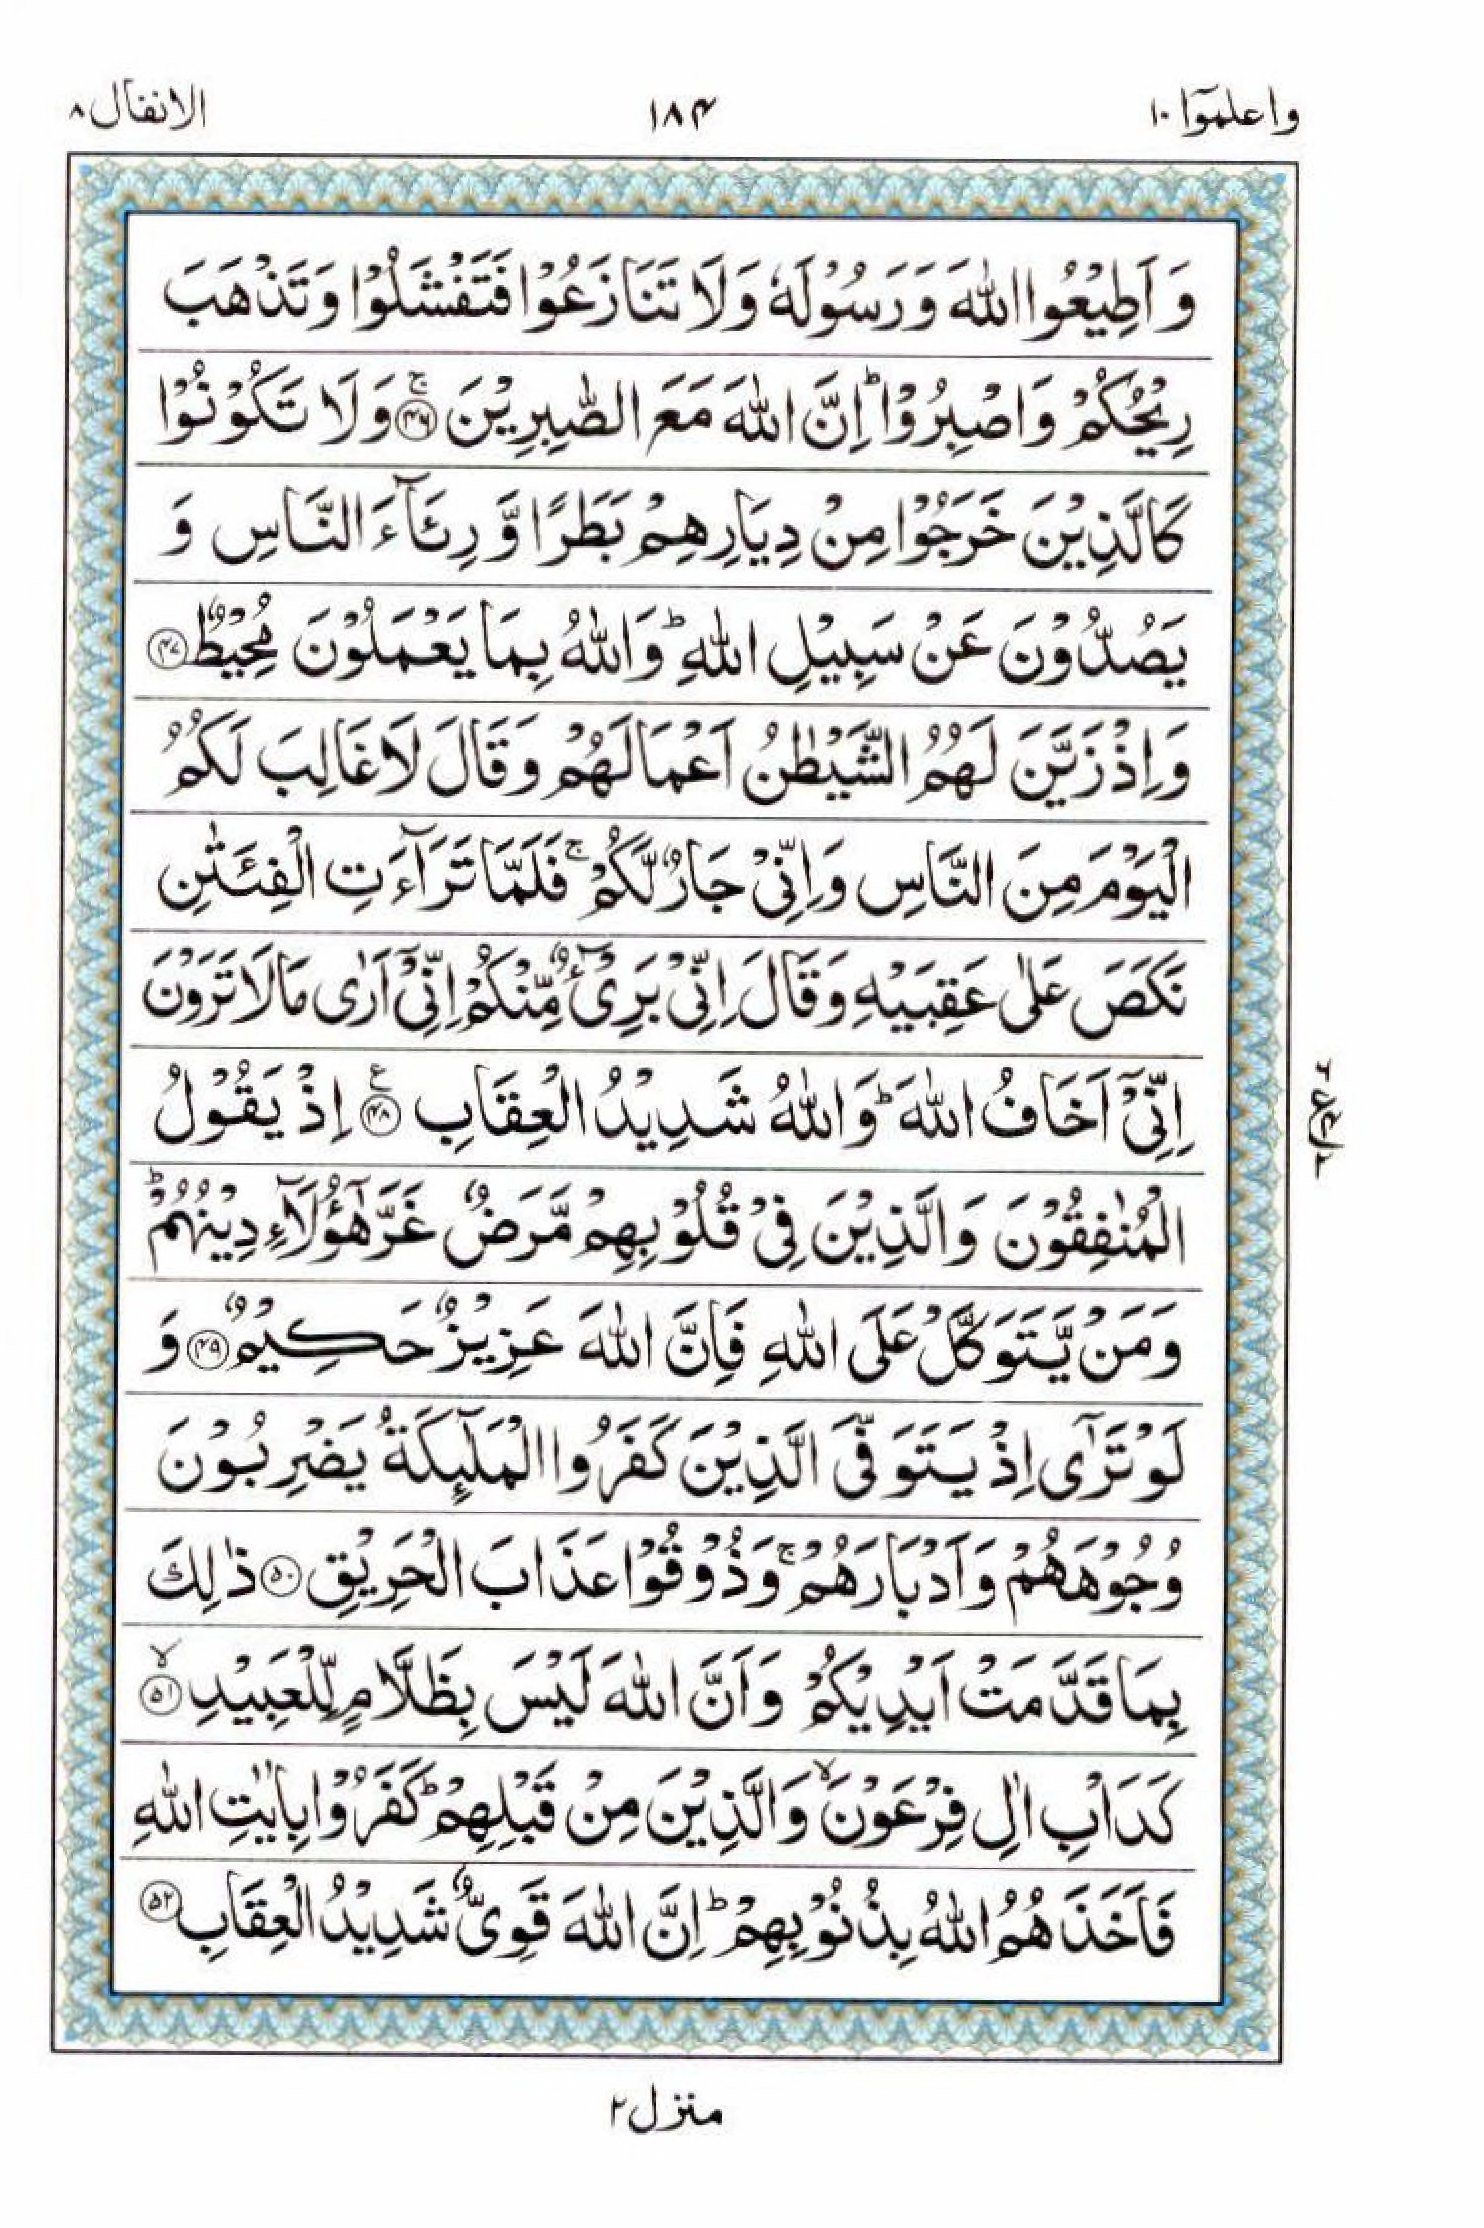 واعلموٓا ۱۰
۱۸۴
الانفال ۸
وَ اَطِيْعُوا اللّٰهَ وَ رَسُوْلَهٗ وَ لَا تَنَازَعُوْا فَتَفْشَلُوْا وَ تَذْهَبَ
رِيْحُكُمْ وَ اصْبِرُوْاؕ اِنَّ اللّٰهَ مَعَ الصّٰبِرِيْنَۚ ﴿۴۶﴾ وَ لَا تَكُوْنُوْا
كَالَّذِيْنَ خَرَجُوْا مِنْ دِيَارِهِمْ بَطَرًا وَّ رِئَآءَ النَّاسِ وَ
يَصُدُّوْنَ عَنْ سَبِيْلِ اللّٰهِؕ وَ اللّٰهُ بِمَا يَعْمَلُوْنَ مُحِيْطٌ ﴿۴۷﴾
وَ اِذْ زَيَّنَ لَهُمُ الشَّيْطٰنُ اَعْمَالَهُمْ وَ قَالَ لَا غَالِبَ لَكُمُ
الْيَوْمَ مِنَ النَّاسِ وَ اِنِّيْ جَارٌ لَّكُمْۚ فَلَمَّا تَرَآءَتِ الْفِئَتٰنِ
نَكَصَ عَلٰى عَقِبَيْهِ وَ قَالَ اِنِّيْ بَرِيْٓءٌ مِّنْكُمْ اِنِّيْٓ اَرٰى مَا لَا تَرَوْنَ
اِنِّيْٓ اَخَافُ اللّٰهَؕ وَ اللّٰهُ شَدِيْدُ الْعِقَابِ ﴿۴۸﴾ع اِذْ يَقُوْلُ
الْمُنٰفِقُوْنَ وَ الَّذِيْنَ فِيْ قُلُوْبِهِمْ مَّرَضٌ غَرَّ هٰٓؤُلَآءِ دِيْنُهُمْؕ
وَ مَنْ يَّتَوَكَّلْ عَلَى اللّٰهِ فَاِنَّ اللّٰهَ عَزِيْزٌ حَكِيْمٌ ﴿۴۹﴾ وَ
لَوْ تَرٰٓى اِذْ يَتَوَفَّى الَّذِيْنَ كَفَرُوا الْمَلٰٓئِكَةُ يَضْرِبُوْنَ
وُجُوْهَهُمْ وَ اَدْبَارَهُمْۚ وَ ذُوْقُوْا عَذَابَ الْحَرِيْقِ ﴿۵۰﴾ ذٰلِكَ
بِمَا قَدَّمَتْ اَيْدِيْكُمْ وَ اَنَّ اللّٰهَ لَيْسَ بِظَلَّامٍ لِّلْعَبِيْدِۙ ﴿۵۱﴾
كَدَاْبِ اٰلِ فِرْعَوْنَۙ وَ الَّذِيْنَ مِنْ قَبْلِهِمْؕ كَفَرُوْا بِاٰيٰتِ اللّٰهِ
فَاَخَذَهُمُ اللّٰهُ بِذُنُوْبِهِمْؕ اِنَّ اللّٰهَ قَوِيٌّ شَدِيْدُ الْعِقَابِ ﴿۵۲﴾
منزل ۲